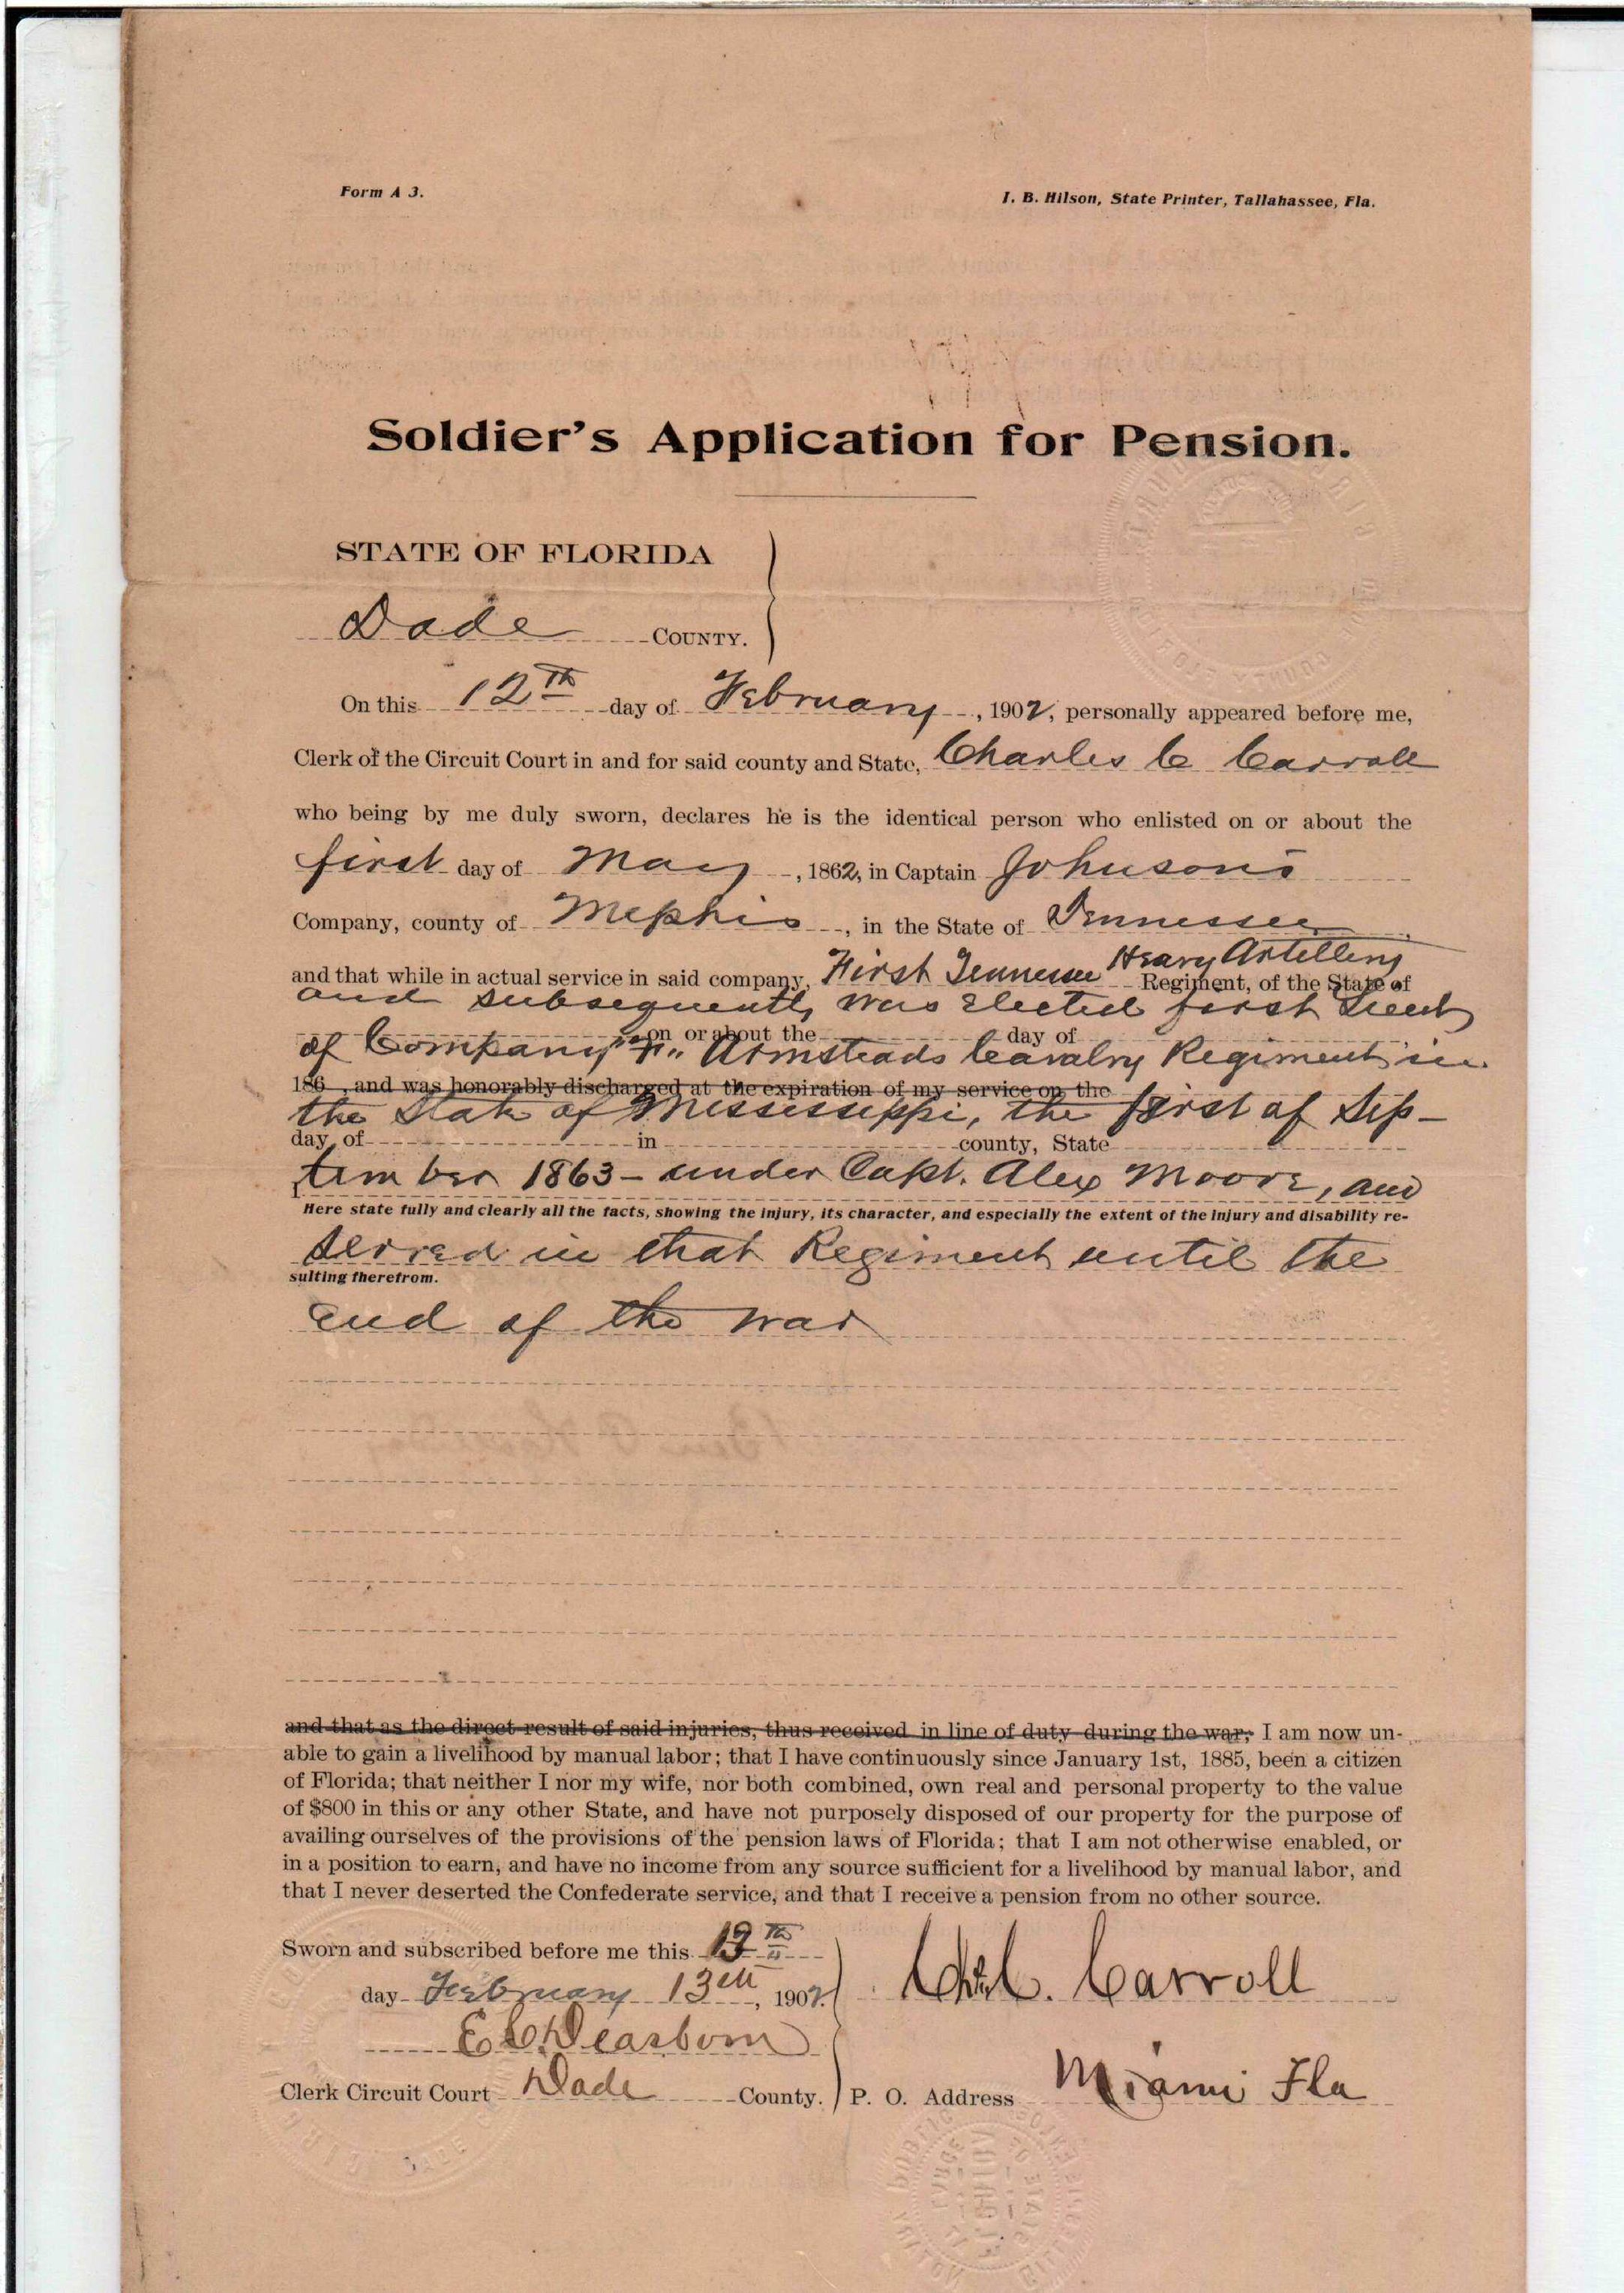 Form A 3.
I. B. Hilson, State Printer, Tallahassee, Fla.
Soldier's Application for Pension.
STATE OF FLORIDA
Dade COUNTY.
On this 12th day of February, 1902, personally appeared before me,
Clerk of the Circuit Court in and for said county and State, Charles C Carroll
who being by me duly sworn, declares he is the identical person who enlisted on or about the
first day of May, 1862, in Captain Johnson's
Company, county of Mephis, in the State of Tennessee
and that while in actual service in said company, First Tennessee Heavy Artillery Regiment, of the State of
and subsequently was elected first Lieut
on or about the day of
of Company "F" Armsteads Cavalry Regiment in
186 , and was honorably discharged at the expiration of my service on the
the State of Mississippi, the first of Sep-
day of in county, State
tember 1863 - under Capt. Alex Moore, and
Here state fully and clearly all the facts, showing the injury, its character, and especially the extent of the injury and disability re-
served in that Regiment until the
sulting therefrom.
end of the war
and that as the direct result of said injuries, thus received in line of duty during the war; I am now un-
able to gain a livelihood by manual labor; that I have continuously since January 1st, 1885, been a citizen
of Florida; that neither I nor my wife, nor both combined, own real and personal property to the value
of $800 in this or any other State, and have not purposely disposed of our property for the purpose of
availing ourselves of the provisions of the pension laws of Florida; that I am not otherwise enabled, or
in a position to earn, and have no income from any source sufficient for a livelihood by manual labor, and
that I never deserted the Confederate service, and that I receive a pension from no other source.
Sworn and subscribed before me this 13th
day February 13th, 1902.
Chs. C. Carroll
E C Dearborn
Clerk Circuit Court Dade County.
P. O. Address Miami Fla